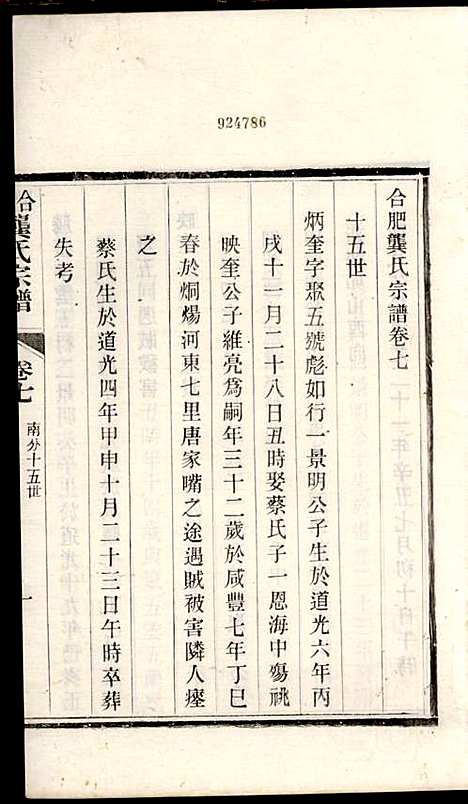 924786
合肥龔氏宗譜卷七
十五世
炳奎字聚五號彪如行一景明公子生於道光六年丙
戌十一月二十八日丑時娶蔡氏子一恩海中殤祧
映奎公子維亮爲嗣年三十二歲於咸豐七年丁巳
春於烔煬河東七里唐家嘴之途遇賊被害隣人瘞
之
蔡氏生於道光四年甲申十月二十三日午時卒葬
失考
合肥龔氏宗譜
卷七
南分十五世
一